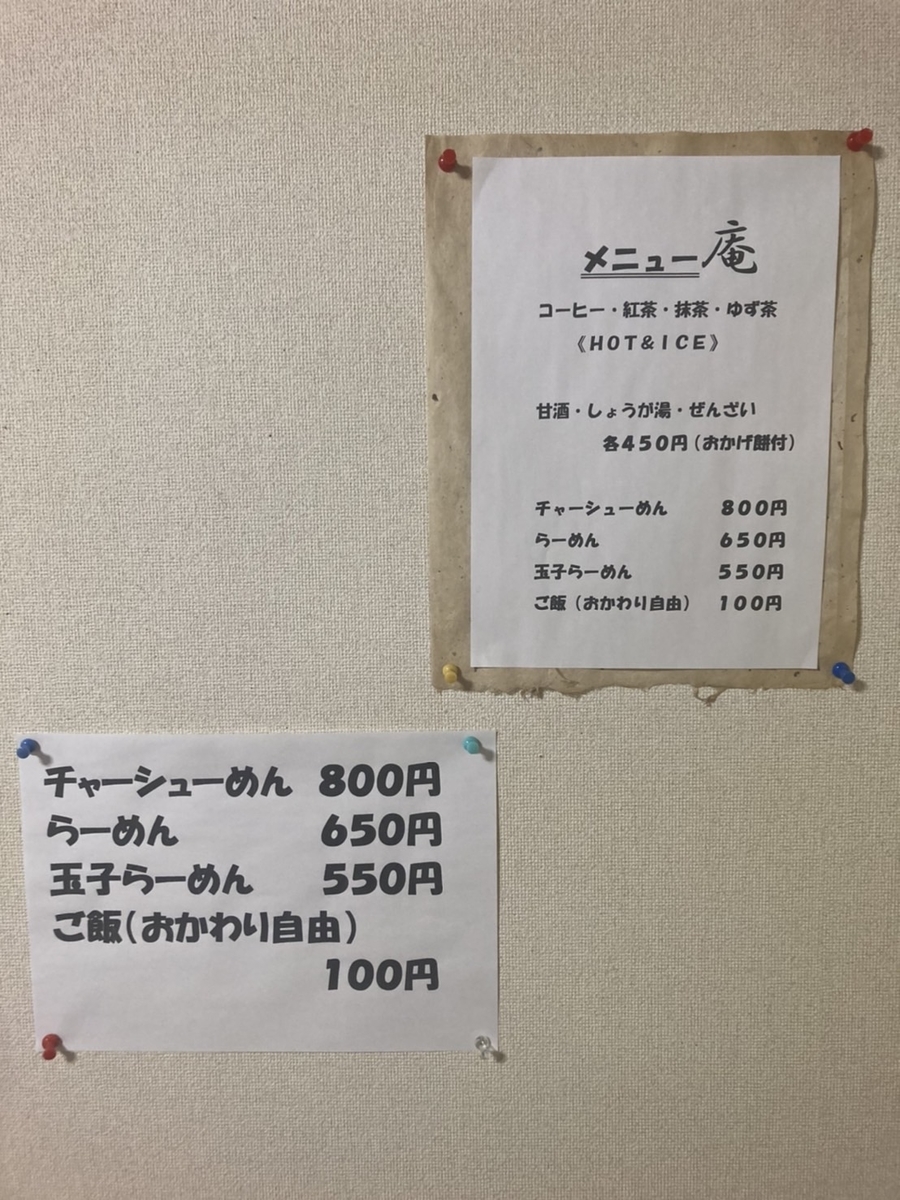 メニュー庵
コーヒー・紅茶・抹茶・ゆず茶
《HOT&ICE》
甘酒・しょうが湯・ぜんざい
各450円(おかげ餅付)
チャーシューめん 800円
らーめん 650円
玉子らーめん 550円
ご飯(おかわり自由) 100円
チャーシューめん 800円
らーめん 650円
玉子らーめん 550円
ご飯(おかわり自由)
100円